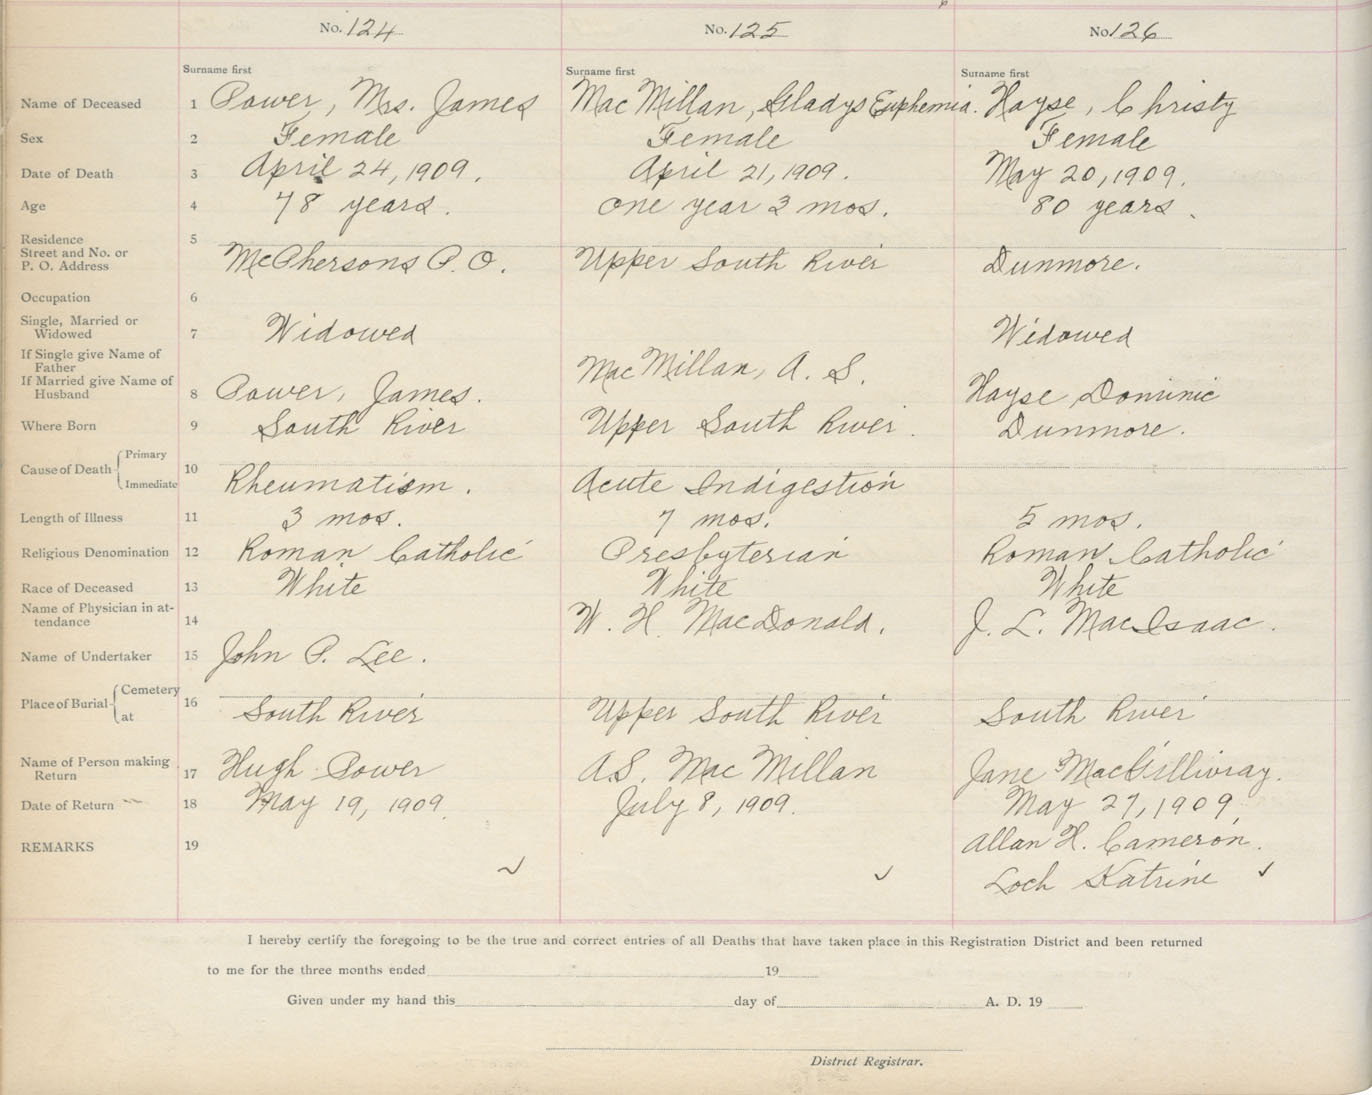 No. 124 No. 125 No 126
Surname first Surname first Surname first
Name of Deceased 1 Power, Mrs. James MacMillan, Gladys Euphemia. Hayse, Christy
Sex 2 Female Female Female
Date of Death 3 April 24, 1909. April 21, 1909. May 20, 1909.
Age 4 78 years. one year 3 mos. 80 years.
Residence 5
Street and No. or
P. O. Address McPhersons P.O. Upper South River Dunmore.
Occupation 6
Single, Married or
Widowed 7 Widowed Widowed
If Single give Name of
Father MacMillan, A. S.
If Married give Name of
Husband 8 Power, James. Hayse Dominic
Where Born 9 South River Upper South River. Dunmore.
Cause of Death Primary 10
Immediate Rheumatism. Acute Indigestion
Length of Illness 11 3 mos. 7 mos. 5 mos.
Religious Denomination 12 Roman Catholic Presbyterian Roman Catholic
Race of Deceased 13 White White White
Name of Physician in at-
tendance 14 W. H. MacDonald. J. L. MacIsaac.
Name of Undertaker 15 John P. Lee.
Place of Burial Cemetery 16
at South River Upper South River South River
Name of Person making
Return 17 Hugh Power A.S. MacMillan Jane MacGillivray.
Date of Return 18 May 19, 1909. July 8, 1909. May 27, 1909
REMARKS 19 Allan H. Cameron.
Loch Katrine
I hereby certify the foregoing to be the true and correct entries of all Deaths that have taken place in this Registration District and been returned
to me for the three months ended 19
Given under my hand this day of A. D. 19
District Registrar.